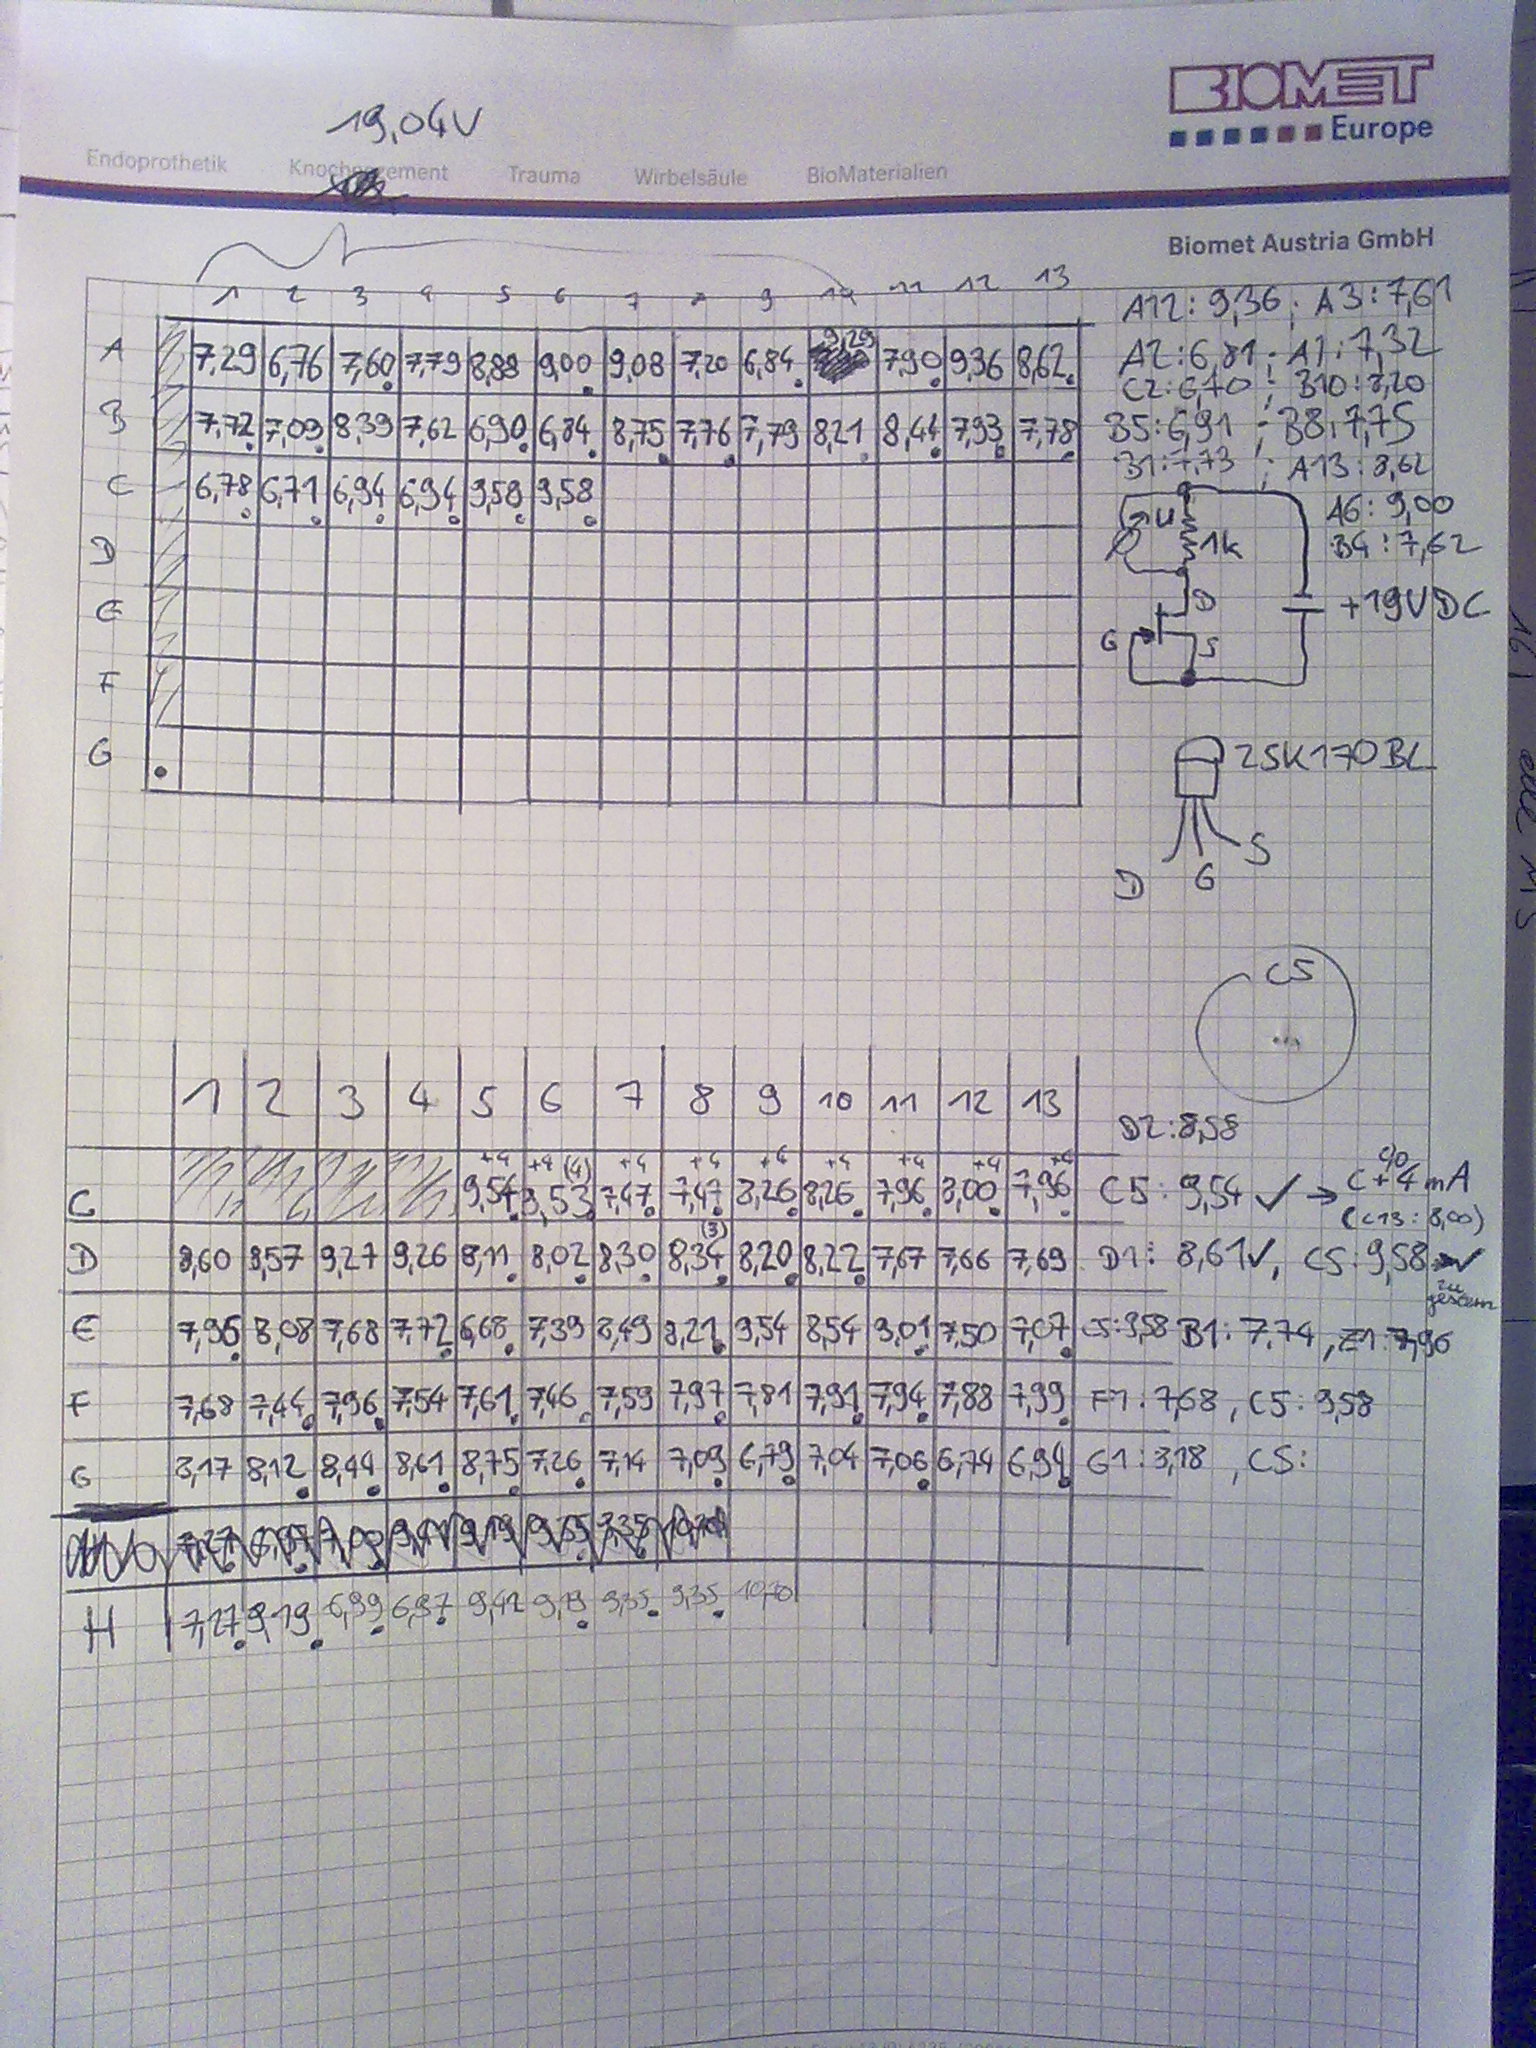 BIOMET
Europe
19,04V
Endoprothetik Trauma Wirbelsäule BioMaterialien
Biomet Austria GmbH
1 2 3 4 5 6 7 8 9 10 11 12 13
A 7,29 6,76 7,60 7,79 8,88 9,00 9,08 7,20 6,84 9,29 7,90 9,36 8,62
B 7,72 7,09 8,39 7,62 6,90 6,84 8,75 7,76 7,79 8,21 8,44 7,93 7,78
C 6,78 6,71 6,94 6,94 9,58 9,58
D
E
F
G
A12: 9,36 ; A3: 7,61
A2: 6,81 ; A1: 7,32
C2: 6,70 ; B10: 8,20
B5: 6,91 ; B8: 7,75
B1: 7,73 ; A13: 8,62
A6: 9,00
B4: 7,62
U
1k
D
G
S
+19V DC
2SK170BL
D G S
C5
1 2 3 4 5 6 7 8 9 10 11 12 13
D2: 8,58
+4 +4 (4) +4 +4 +4 +4 +4 +4 +4
C 9,54 9,53 7,47 7,47 8,26 8,26 7,96 8,00 7,96 C5: 9,54 ✓ → C+4 mA
(C13: 8,00)
(3)
D 8,60 8,57 9,27 9,26 8,11 8,02 8,30 8,34 8,20 8,22 7,67 7,66 7,69 D1: 8,61 ✓, C5: 9,58 ✓
zu gestern
E 7,96 8,08 7,68 7,72 6,68 7,39 8,49 8,21 9,54 8,54 9,01 7,50 7,07 C5: 9,58 B1: 7,74, E1: 7,96
F 7,68 7,44 7,96 7,54 7,61 7,46 7,59 7,97 7,81 7,91 7,94 7,88 7,99 F1: 7,68, C5: 9,58
G 8,17 8,12 8,44 8,61 8,75 7,26 7,14 7,09 6,79 7,04 7,06 6,74 6,94 G1: 8,18, C5:
H 7,27 9,19 6,99 6,97 9,42 9,19 9,35 9,35 10,70